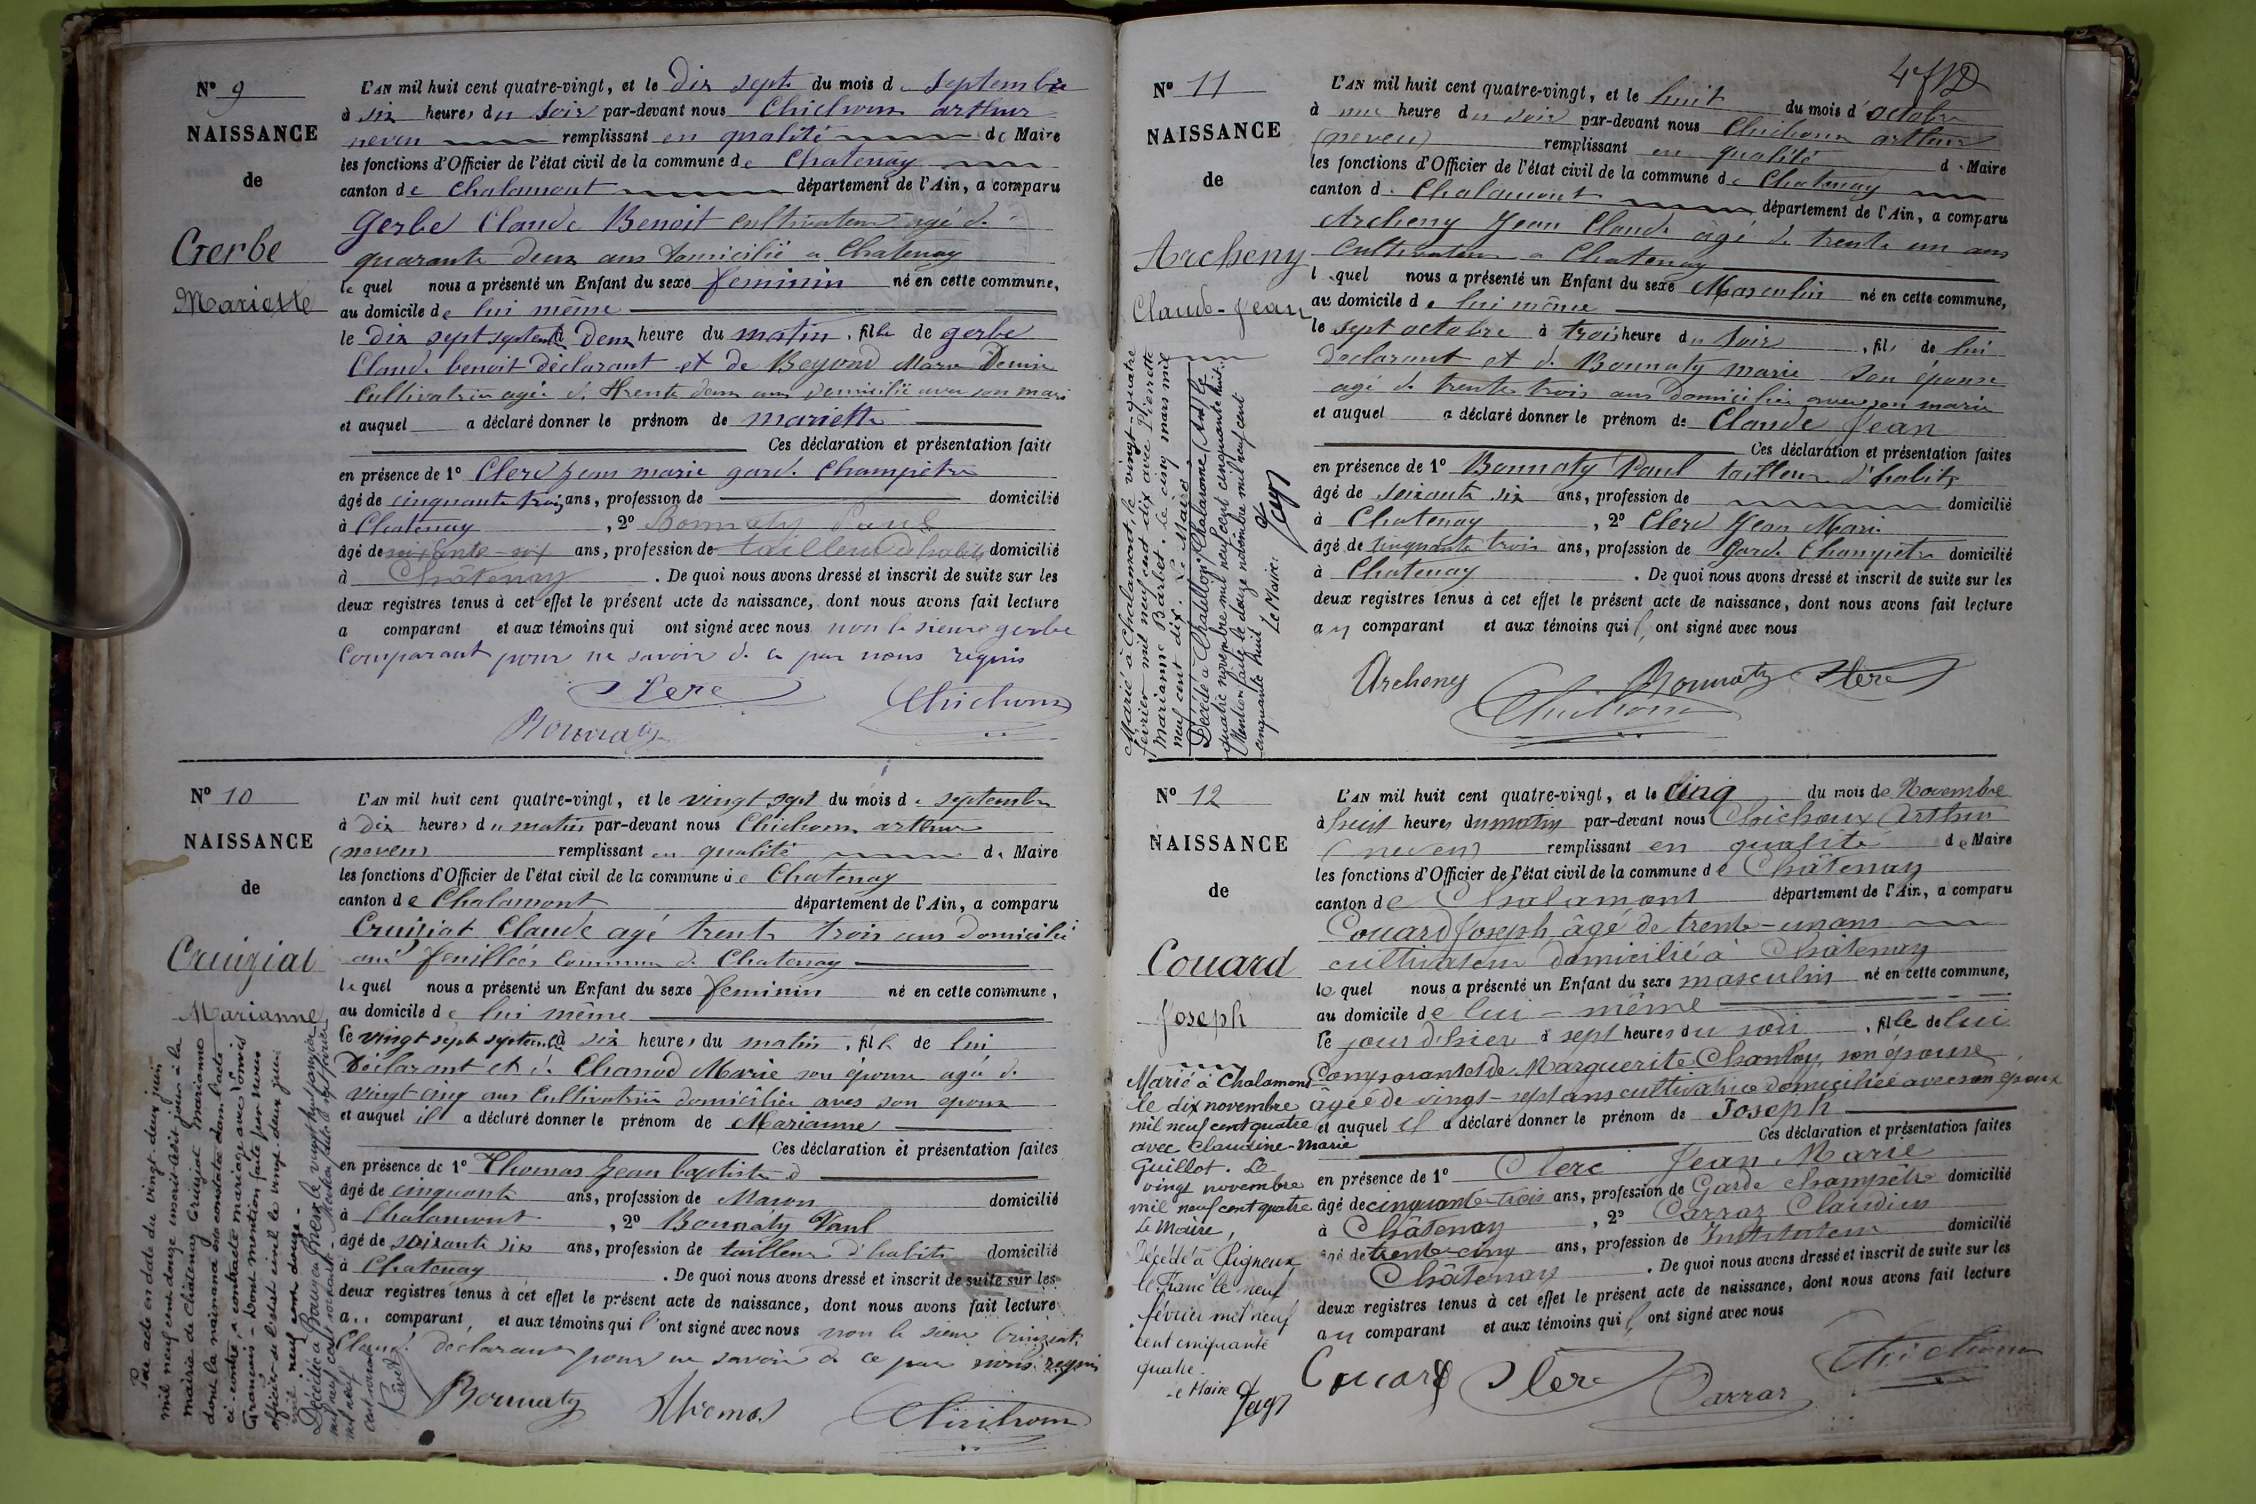 Nº 9
NAISSANCE
de
Gerbe
Mariette
L'AN mil huit cent quatre-vingt, et le dix sept du mois de septembre
à six heures du soir par-devant nous Chichoux arthur
neveu remplissant en qualité de Maire
les fonctions d'Officier de l'état civil de la commune de Chatenay
canton de Chalamont département de l'Ain, a comparu
Gerbe Claude Benoit cultivateur agé de
quarante deux ans domicilié a Chatenay
lequel nous a présenté un Enfant du sexe feminin né en cette commune,
au domicile de lui même
le dix sept septembre à deux heure du matin, fille de gerbe
Claude benoit déclarant et de Marie
Cultivatrice agée de trente deux ans domicilié avec son mari
et auquel a déclaré donner le prénom de mariette
Ces déclaration et présentation faite
en présence de 1º Clerc jean marie garde Champètre
âgé de cinquante trois ans, profession de domicilié
à Chatenay, 2º Bonnaty Paul
âgé de soixante-six ans, profession de tailleur d'habits domicilié
à Châtenay. De quoi nous avons dressé et inscrit de suite sur les
deux registres tenus à cet effet le présent acte de naissance, dont nous avons fait lecture
a comparant et aux témoins qui ont signé avec nous non le sieur gerbe
Comparant pour ne savoir de ce par nous requis
Clerc
Chichoux
Bonnaty
Nº 10
NAISSANCE
de
Cruiziat
Marianne
L'AN mil huit cent quatre-vingt, et le vingt sept du mois de septembre
à dix heures du matin par-devant nous Chichoux arthur
(neveu) remplissant en qualité de Maire
les fonctions d'Officier de l'état civil de la commune de Chatenay
canton de Chalamont département de l'Ain, a comparu
Cruiziat Claude agé trente trois ans domicilié
aux feuillées Commune de Chatenay
lequel nous a présenté un Enfant du sexe feminin né en cette commune,
au domicile de lui même
le vingt sept septembre à six heures du matin, fille de lui
Déclarant et de Chanod Marie son épouse agée de
vingt cinq ans Cultivatrice domiciliée avec son epoux
et auquel il a déclaré donner le prénom de Marianne
Ces déclaration et présentation faites
en présence de 1º Thomas Jean baptiste
âgé de cinquante ans, profession de Maçon domicilié
à Chalamont, 2º Bonnaty Paul
âgé de soixante six ans, profession de tailleur d'habits domicilié
à Chatenay. De quoi nous avons dressé et inscrit de suite sur les
deux registres tenus à cet effet le présent acte de naissance, dont nous avons fait lecture
au comparant et aux témoins qui l'ont signé avec nous non le sieur Cruiziat
Claude déclarant pour ne savoir de ce par nous requis
Bonnaty
Thomas
Chichoux
Par acte en date du vingt-deux juin
mil neuf cent douze inscrit ledit jour à la
mairie de Châtenay Cruiziat Marianne
dont la naissance est constatée dans l'acte
ci-contre, a contracté mariage avec
Dont mention faite par nous
officier de l'état civil le vingt-deux juin
mil neuf cent douze.
Nº 11
NAISSANCE
de
Archeny
Claude-Jean
L'AN mil huit cent quatre-vingt, et le huit du mois d'octobre
à une heure du soir par-devant nous Chichoux arthur
(neveu) remplissant en qualité de Maire
les fonctions d'Officier de l'état civil de la commune de Chatenay
canton de Chalamont département de l'Ain, a comparu
Archeny Jean Claude âgé de trente un ans
Cultivateur a Chatenay
lequel nous a présenté un Enfant du sexe Masculin né en cette commune,
au domicile de lui même
le sept octobre à trois heure du soir, fils de lui
declarant et de Bonnaty marie son épouse
agé de trente trois ans domiciliée avec son marie
et auquel a déclaré donner le prénom de Claude Jean
Ces déclaration et présentation faites
en présence de 1º Bonnaty Paul tailleur d'habits
âgé de soixante six ans, profession de domicilié
à Chatenay, 2º Clerc Jean Marie
âgé de cinquante trois ans, profession de Garde Champètre domicilié
à Chatenay. De quoi nous avons dressé et inscrit de suite sur les
deux registres tenus à cet effet le présent acte de naissance, dont nous avons fait lecture
au comparant et aux témoins qui l'ont signé avec nous
Archeny
Bonnaty
Clerc
Chichoux
Marié à Chalamont, le vingt-quatre
février mil neuf cent dix avec Pierrette
Marianne Barbet. Le cinq mars mil
neuf cent dix. Le Maire
Décédé à Chatillon/Chalaronne (Ain) le
quatre novembre mil neuf cent cinquante huit.
Mention faite le douze novembre mil neuf cent
cinquante huit
Le Maire
Nº 12
NAISSANCE
de
Couard
Joseph
L'AN mil huit cent quatre-vingt, et le Cinq du mois de Novembre
à huit heures du matin par-devant nous Chichoux Arthur
(neveu) remplissant en qualité de Maire
les fonctions d'Officier de l'état civil de la commune de Châtenay
canton de Chalamont département de l'Ain, a comparu
Couard Joseph âgé de trente-un ans
cultivateur domicilié à Châtenay
lequel nous a présenté un Enfant du sexe masculin né en cette commune,
au domicile de lui-même
le jour d'hier à sept heures du soir, fils de lui
Comparant et de Marguerite son épouse
âgée de vingt-sept ans cultivatrice domiciliée avec son époux
et auquel il a déclaré donner le prénom de Joseph
Ces déclaration et présentation faites
en présence de 1º Clerc Jean Marie
âgé de cinquante-trois ans, profession de Garde champêtre domicilié
à Châtenay, 2º Carraz Claudius
âgé de trente-cinq ans, profession de Instituteur domicilié
Châtenay. De quoi nous avons dressé et inscrit de suite sur les
deux registres tenus à cet effet le présent acte de naissance, dont nous avons fait lecture
au comparant et aux témoins qui l'ont signé avec nous
Couard
Clerc
Carraz
Chichoux
Marié à Chalamont
le dix novembre
mil neuf cent quatre
avec Claudine-Marie
Guillot. Le
vingt novembre
mil neuf cent quatre
Le Maire,
Décédé à Rigneux
le Franc le neuf
février mil neuf
cent cinquante
quatre.
Le Maire